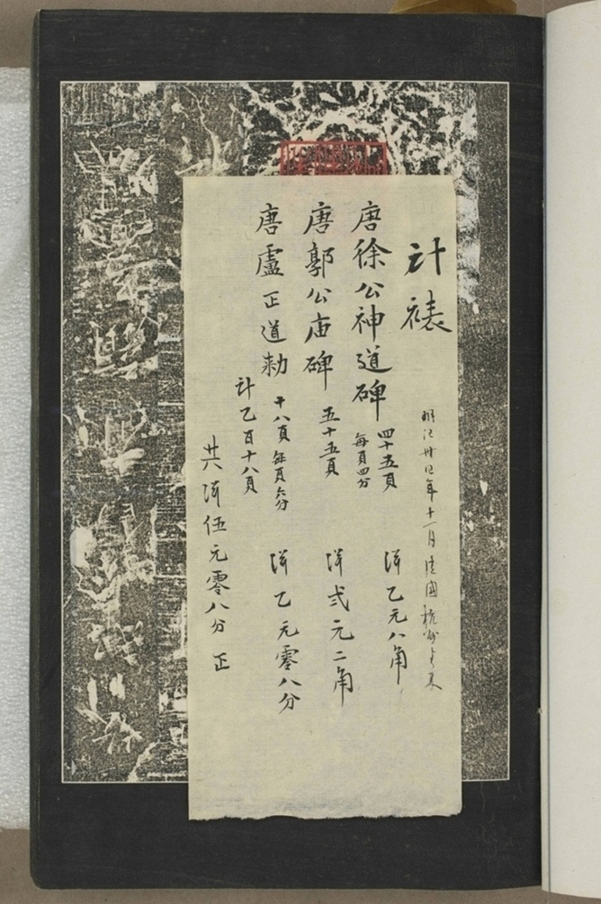 計裱
明治卅四年十一月清國杭州
唐徐公神道碑 四十五頁 每頁四分 洋乙元八角
唐郭公庙碑 五十五頁 洋弍元二角
唐盧正道勅 十八頁 每頁六分 洋乙元零八分
計乙百十八頁
共洋伍元零八分 正